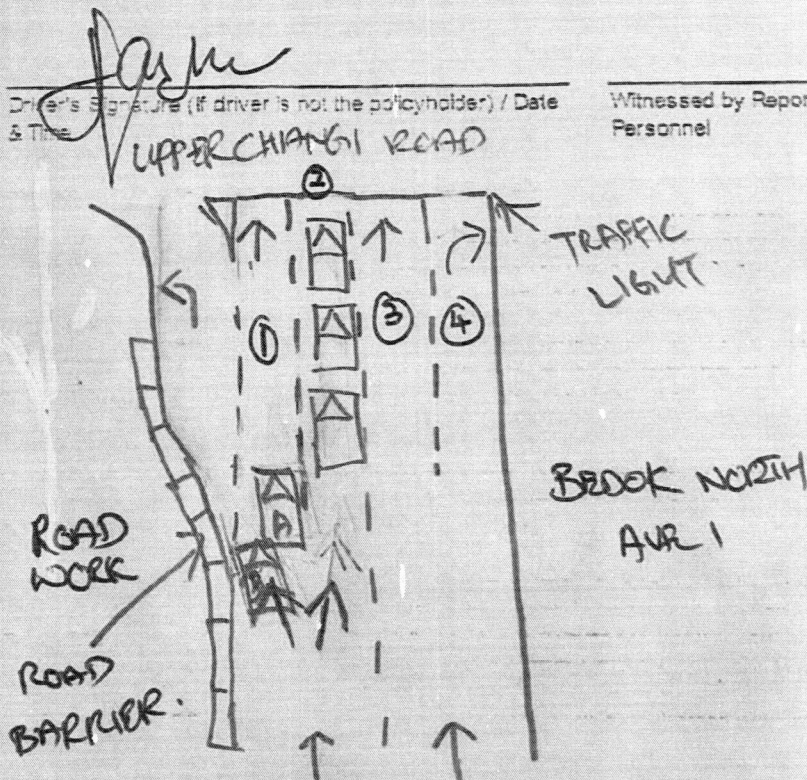 Driver's Signature (if driver is not the policyholder) / Date
& Time
Witnessed by Repor
Personnel
UPPER CHANGI ROAD
②
TRAFFIC
LIGHT.
①
③
④
A
B
BEDOK NORTH
AVE 1
ROAD
WORK
ROAD
BARRIER.